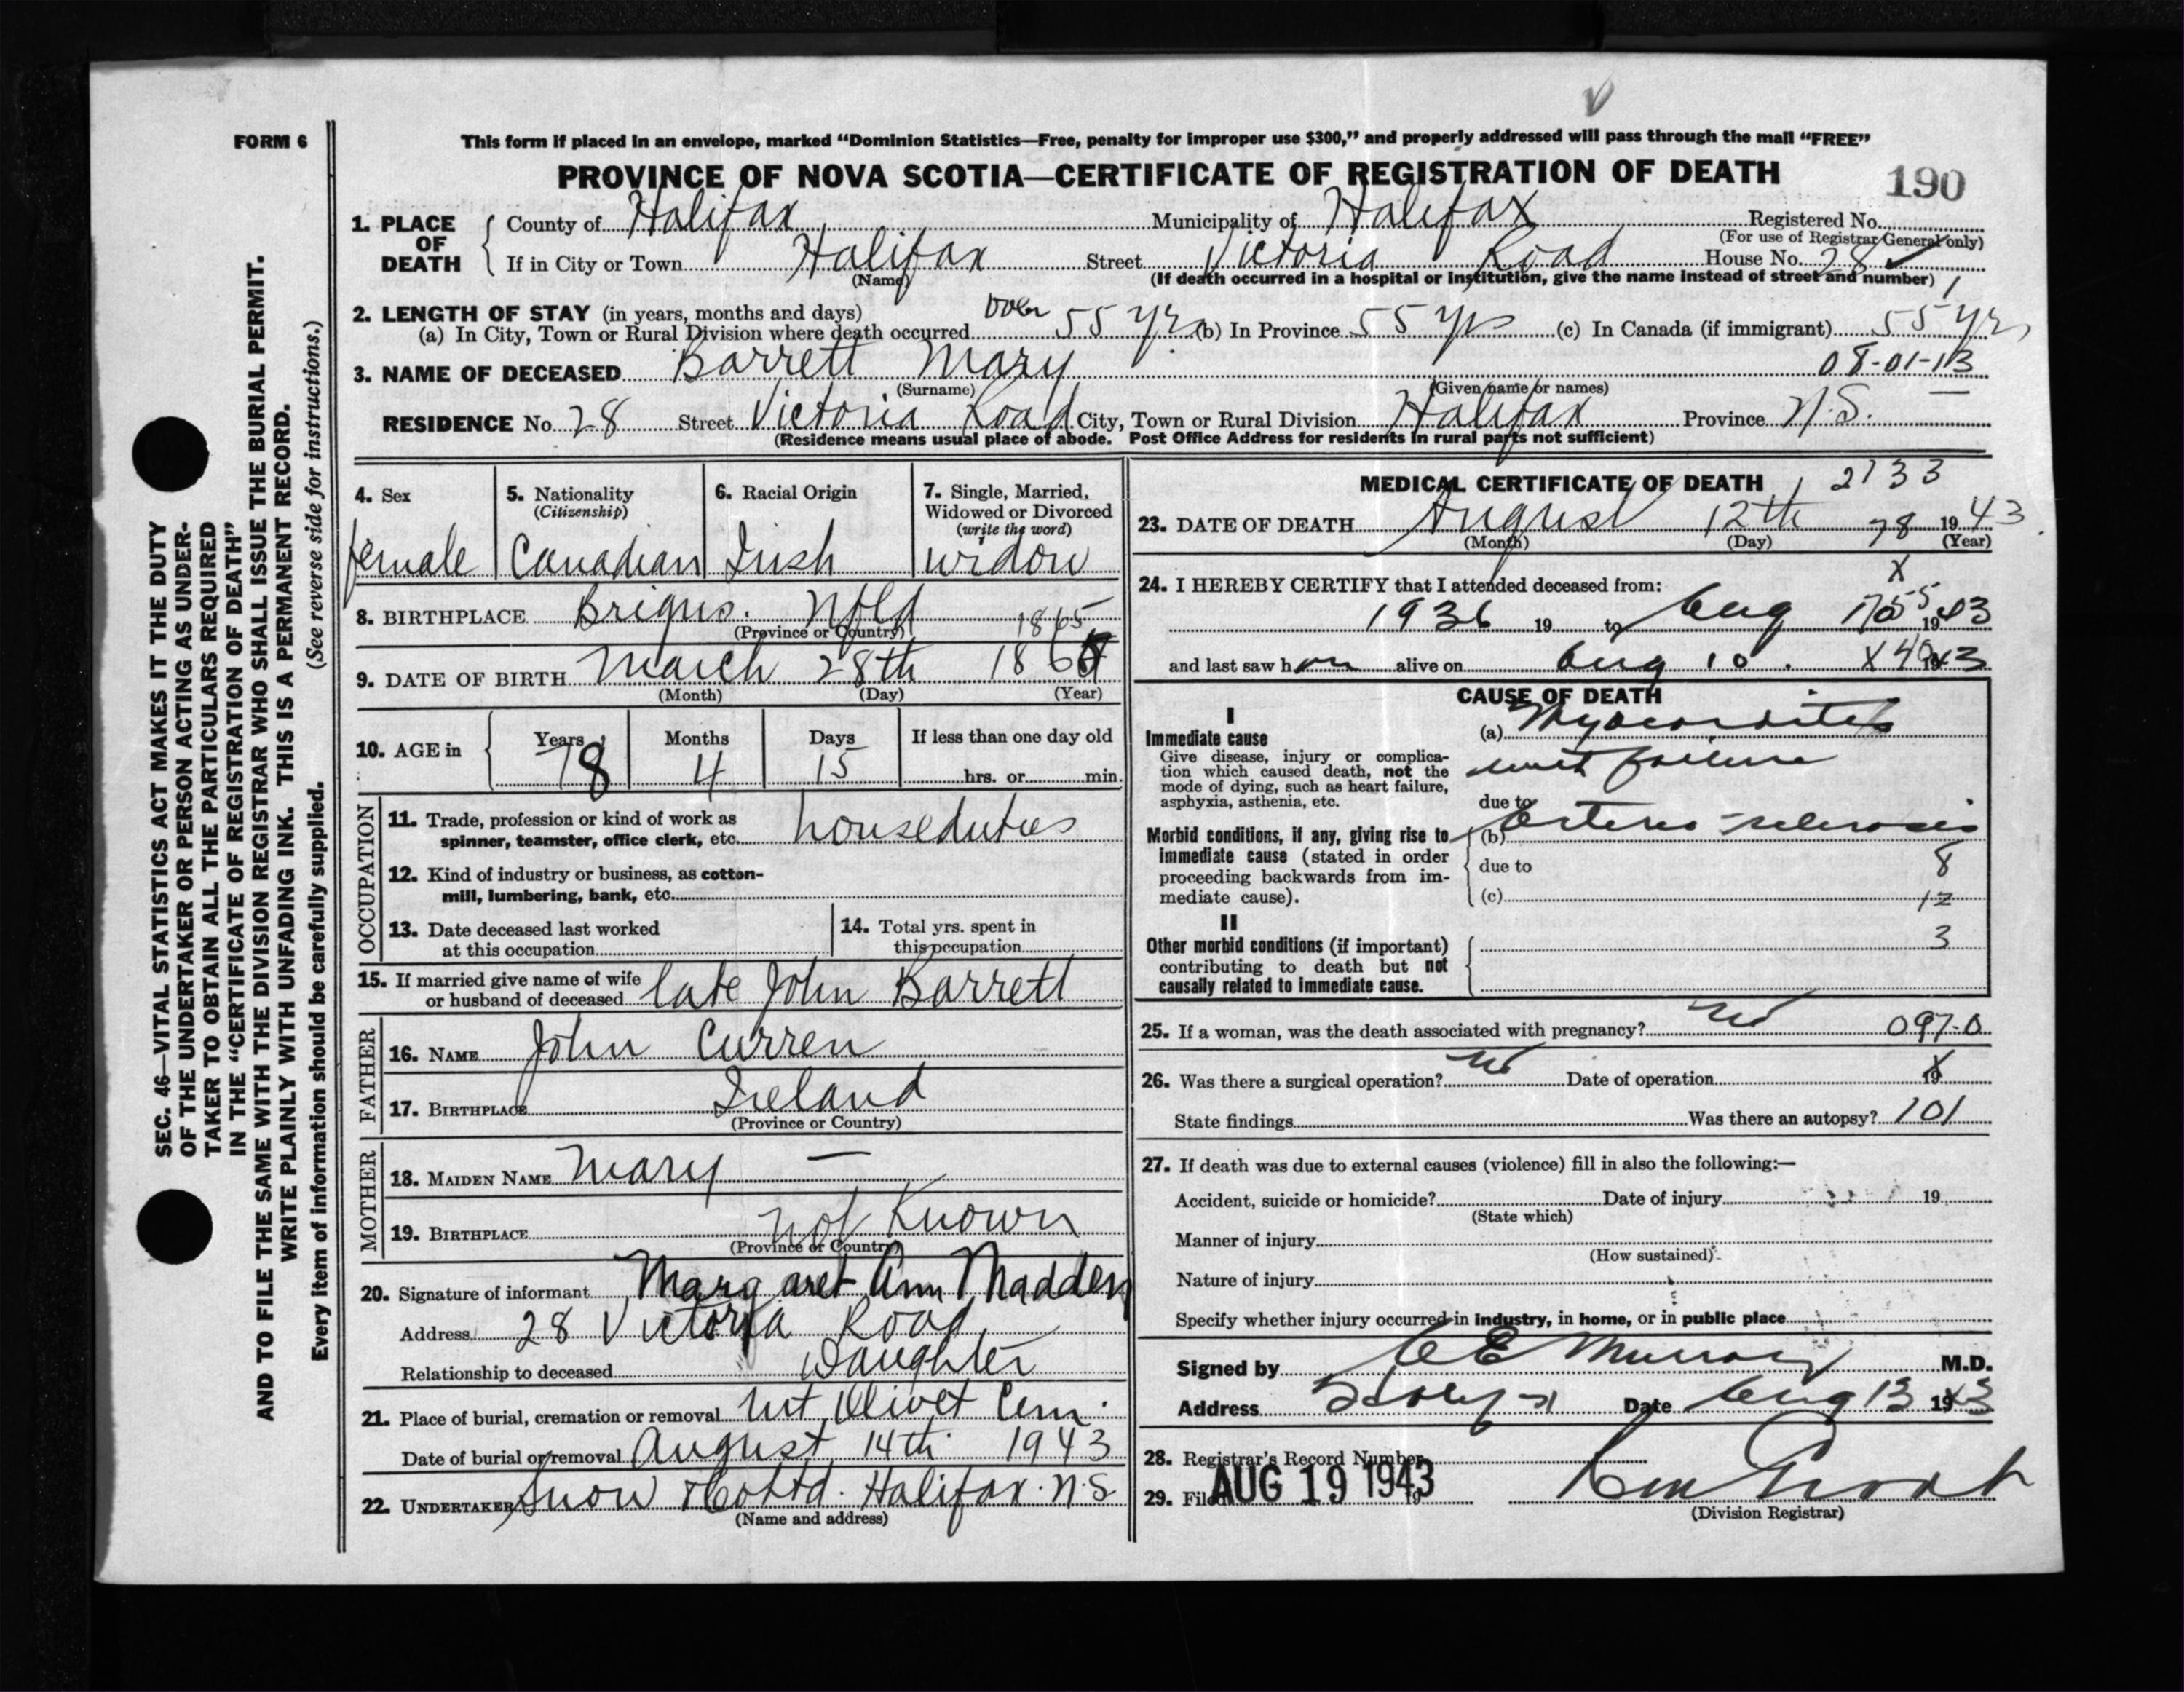 FORM 6
This form if placed in an envelope, marked “Dominion Statistics—Free, penalty for improper use $300,” and properly addressed will pass through the mail “FREE”
PROVINCE OF NOVA SCOTIA—CERTIFICATE OF REGISTRATION OF DEATH
190
1. PLACE OF DEATH
County of Halifax Municipality of Halifax Registered No.
(For use of Registrar General only)
If in City or Town Halifax Street Victoria Road House No. 28
(Name) (If death occurred in a hospital or institution, give the name instead of street and number)
2. LENGTH OF STAY (in years, months and days)
(a) In City, Town or Rural Division where death occurred over 55 yrs (b) In Province 55 yrs (c) In Canada (if immigrant) 55 yrs
3. NAME OF DECEASED Barrett Mary 08-01-13
(Surname) (Given name or names)
RESIDENCE No. 28 Street Victoria Road City, Town or Rural Division Halifax Province N.S.
(Residence means usual place of abode. Post Office Address for residents in rural parts not sufficient)
SEC. 46—VITAL STATISTICS ACT MAKES IT THE DUTY
OF THE UNDERTAKER OR PERSON ACTING AS UNDER-
TAKER TO OBTAIN ALL THE PARTICULARS REQUIRED
IN THE “CERTIFICATE OF REGISTRATION OF DEATH”
AND TO FILE THE SAME WITH THE DIVISION REGISTRAR WHO SHALL ISSUE THE BURIAL PERMIT.
WRITE PLAINLY WITH UNFADING INK. THIS IS A PERMANENT RECORD.
Every item of information should be carefully supplied. (See reverse side for instructions.)
4. Sex female
5. Nationality (Citizenship) Canadian
6. Racial Origin Irish
7. Single, Married, Widowed or Divorced (write the word) widow
8. BIRTHPLACE Brigus. Nfld
(Province or Country) 1865
9. DATE OF BIRTH March 28th 186
(Month) (Day) (Year)
10. AGE in Years 78 Months 4 Days 15 If less than one day old hrs. or min.
OCCUPATION
11. Trade, profession or kind of work as
spinner, teamster, office clerk, etc. houseduties
12. Kind of industry or business, as cotton-
mill, lumbering, bank, etc.
13. Date deceased last worked
at this occupation
14. Total yrs. spent in
this occupation
15. If married give name of wife
or husband of deceased late John Barrett
FATHER
16. NAME John Curren
17. BIRTHPLACE Ireland
(Province or Country)
MOTHER
18. MAIDEN NAME Mary —
19. BIRTHPLACE not Known
(Province or Country)
20. Signature of informant Margaret Ann Madden
Address 28 Victoria Road
Relationship to deceased Daughter
21. Place of burial, cremation or removal Mt. Olivet Cem.
Date of burial or removal August 14th 1943
22. UNDERTAKER Snow & Co Ltd. Halifax. N.S
(Name and address)
MEDICAL CERTIFICATE OF DEATH 2133
23. DATE OF DEATH August 12th 78 1943
(Month) (Day) (Year)
X
24. I HEREBY CERTIFY that I attended deceased from:
1936 19 to Aug 1943
and last saw her alive on Aug 10. 1943
CAUSE OF DEATH
I
Immediate cause
Give disease, injury or complica-
tion which caused death, not the
mode of dying, such as heart failure,
asphyxia, asthenia, etc.
(a) Myocarditis
with failure
due to
Morbid conditions, if any, giving rise to
immediate cause (stated in order
proceeding backwards from im-
mediate cause).
(b) Arterio-sclerosis
due to 8
(c) 12
II
Other morbid conditions (if important)
contributing to death but not
causally related to immediate cause.
3
25. If a woman, was the death associated with pregnancy? no 097-0
26. Was there a surgical operation? no Date of operation 19 X
State findings Was there an autopsy? 101
27. If death was due to external causes (violence) fill in also the following:—
Accident, suicide or homicide? Date of injury 19
(State which)
Manner of injury
(How sustained)
Nature of injury
Specify whether injury occurred in industry, in home, or in public place
Signed by C E Murray M.D.
Address Date Aug 13 1943
28. Registrar's Record Number
29. Filed AUG 19 1943 19
(Division Registrar)